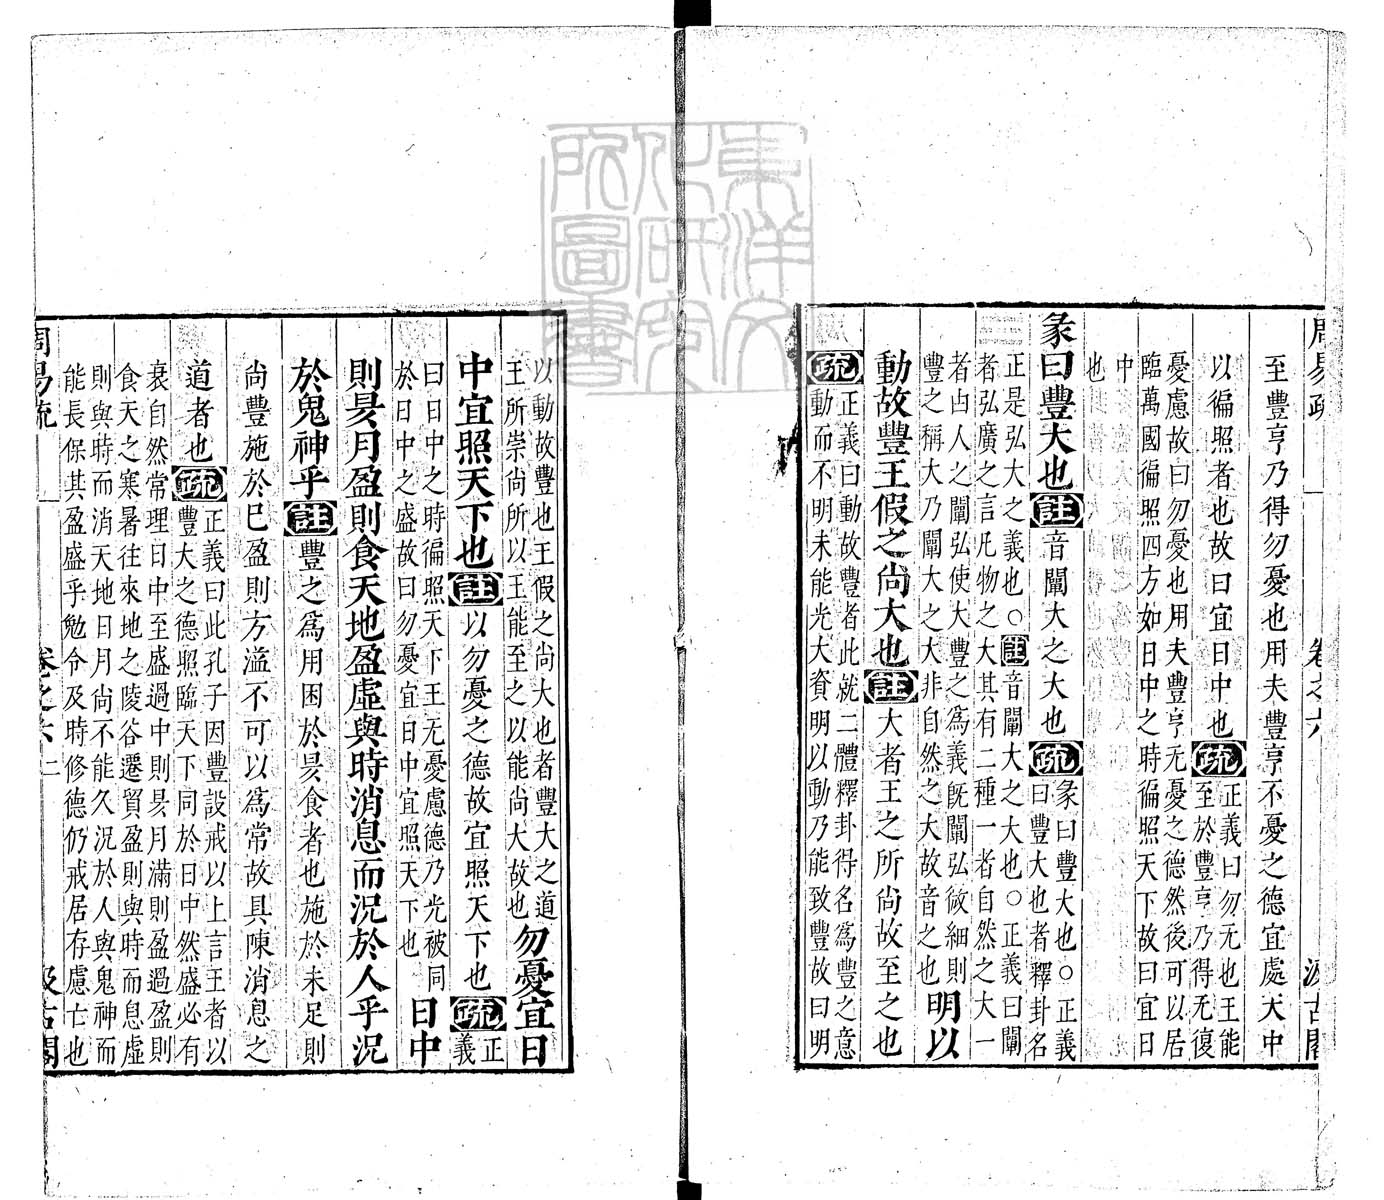 周易疏 卷之六 汲古閣
至豐亨乃得勿憂也用夫豐亨不憂之德宜處天中
以徧照者也故曰宜日中也疏正義曰勿无也王能
至於豐亨乃得无復
憂慮故曰勿憂也用夫豐亨无憂之德然後可以居
臨萬國徧照四方如日中之時徧照天下故曰宜日
中
也
彖曰豐大也註音闡大之大也疏彖曰豐大也○正義
曰豐大也者釋卦名
正是弘大之義也○註音闡大之大也○正義曰闡
者弘廣之言凡物之大其有二種一者自然之大一
者由人之闡弘使大豐之爲義既闡弘微細則
豐之稱大乃闡大之大非自然之大故音之也明以
動故豐王假之尚大也註大者王之所尚故至之也
疏正義曰動故豐者此就二體釋卦得名爲豐之意
動而不明未能光大資明以動乃能致豐故曰明
以動故豐也王假之尚大也者豐大之道
王所崇尚所以王能至之以能尚大故也勿憂宜日
中宜照天下也註以勿憂之德故宜照天下也疏正
義
曰日中之時徧照天下王无憂慮德乃光被同
於日中之盛故曰勿憂宜日中宜照天下也日中
則昃月盈則食天地盈虛與時消息而況於人乎況
於鬼神乎註豐之爲用困於昃食者也施於未足則
尚豐施於巳盈則方溢不可以爲常故具陳消息之
道者也疏正義曰此孔子因豐設戒以上言王者以
豐大之德照臨天下同於日中然盛必有
衰自然常理日中至盛過中則昃月滿則盈過盈則
食天之寒暑往來地之陵谷遷貿盈則與時而息虛
則與時而消天地日月尚不能久況於人與鬼神而
能長保其盈盛乎勉令及時修德仍戒居存慮亡也
周易疏 卷之六 二 汲古閣
東洋文化研究所圖書